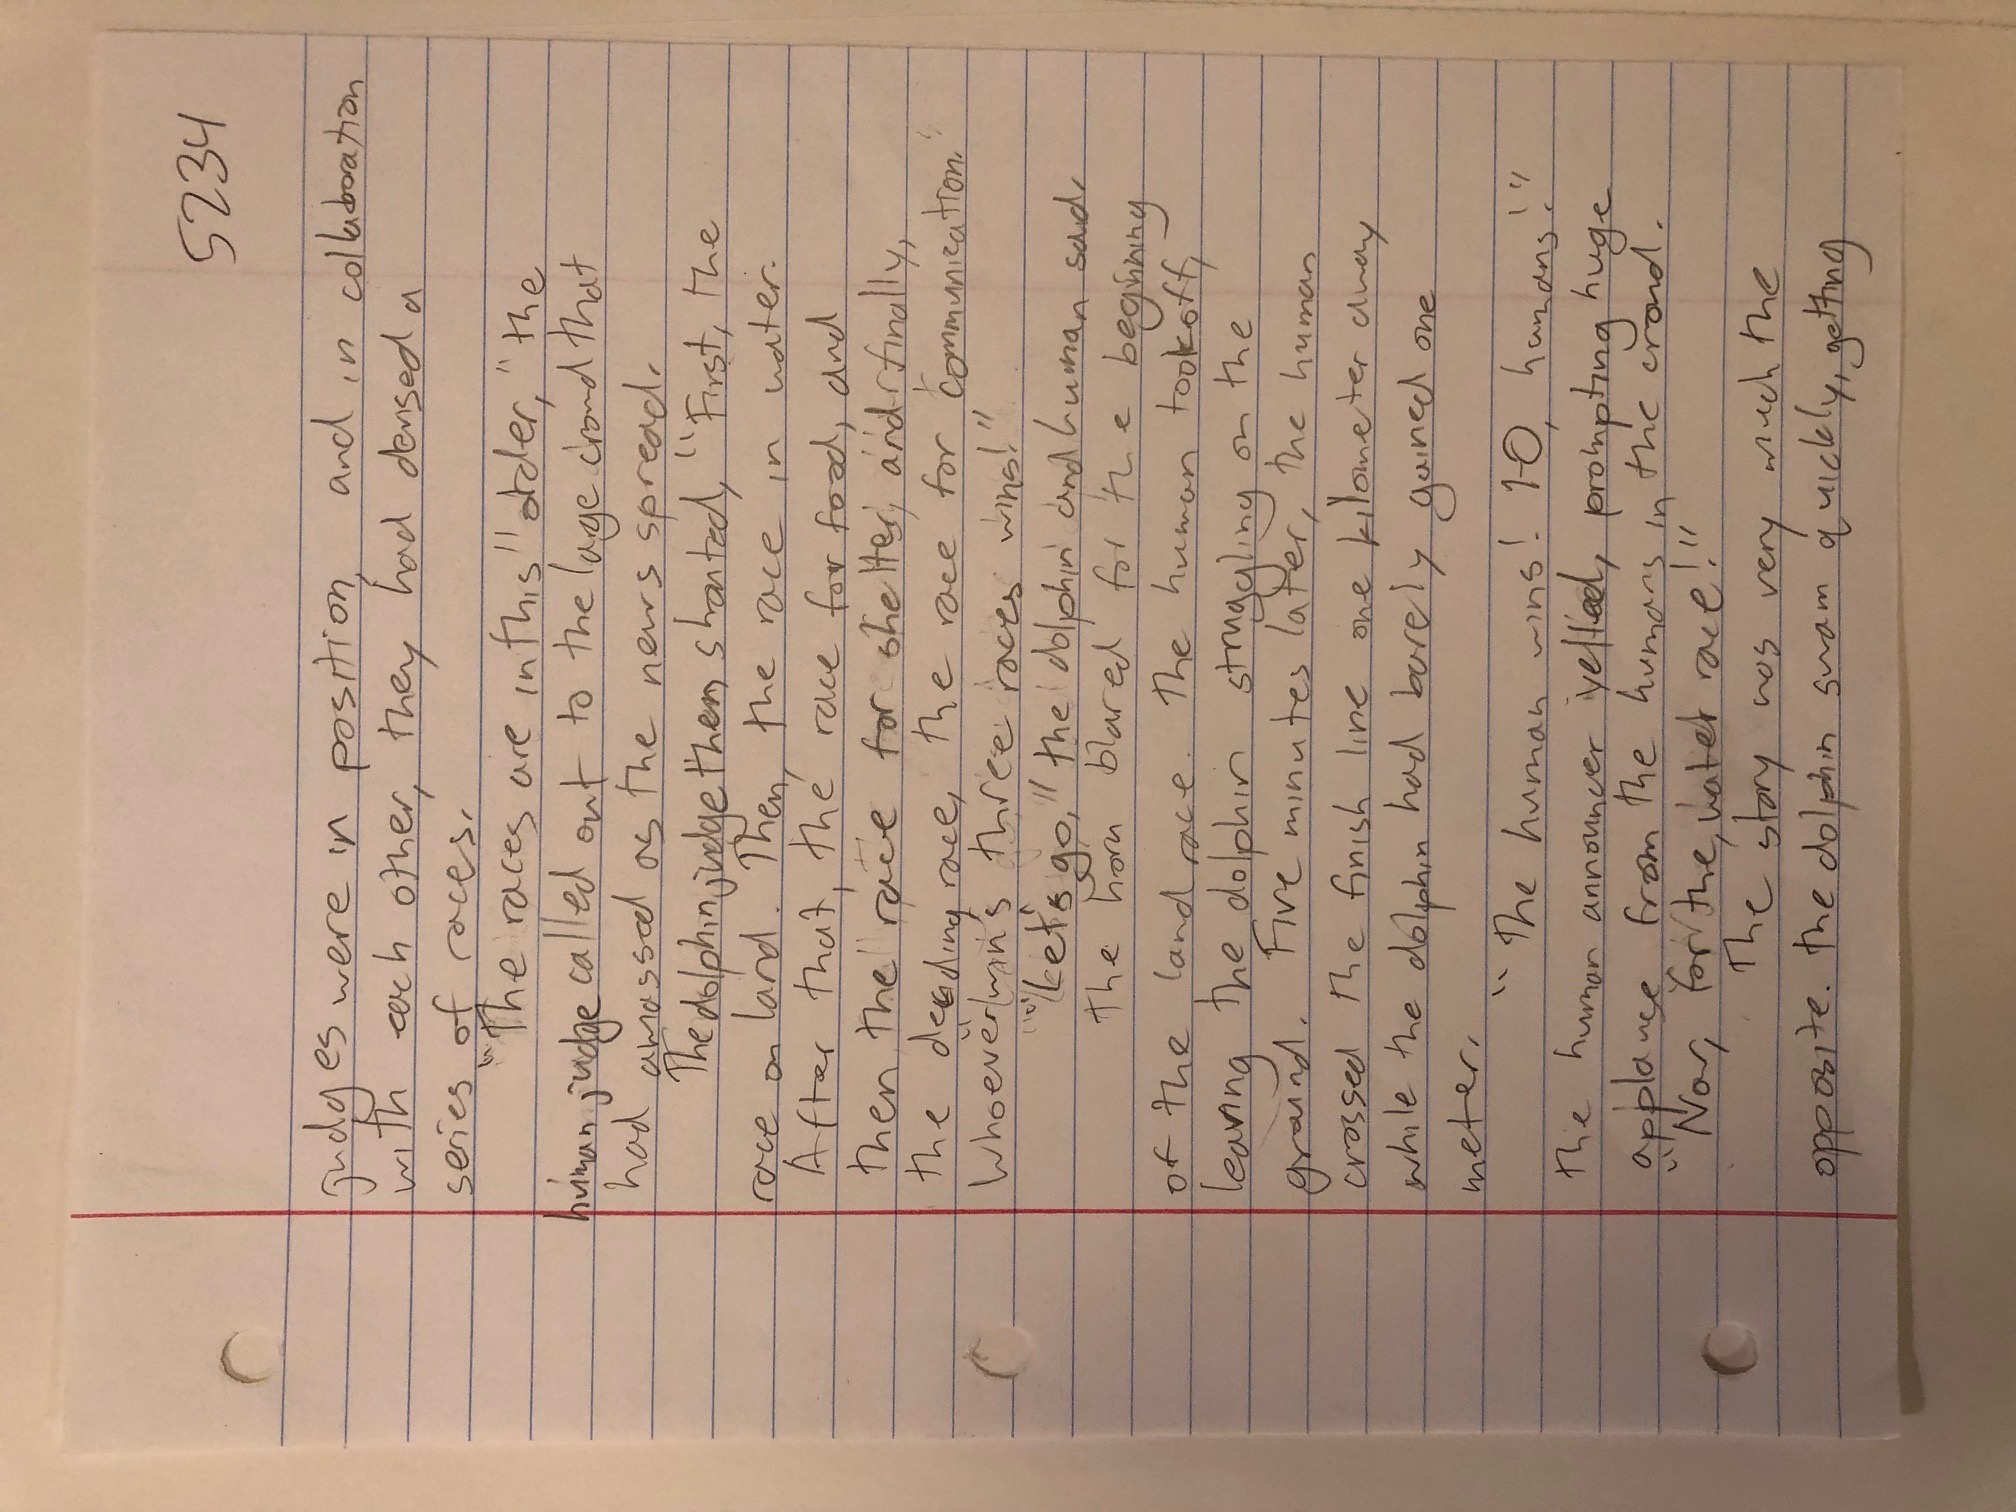 5234
judges were in position, and in collaboration
with each other, they had devised a
series of races.
"The races are in this order," the
human judge called out to the large crowd that
had amassed as the news spread.
The dolphin judge then shouted, "First, the
race on land. Then, the race in water.
After that, the race for food, and
then the race for shelter, and finally,
the deciding race, the race for communication.
Whoever wins three races wins!"
"Let's go," the dolphin and human said.
The horn blared for the beginning
of the land race. The human took off,
leaving the dolphin struggling on the
ground. Five minutes later, the human
crossed the finish line one kilometer away
while the dolphin had barely gained one
meter.
"The human wins! 1-0, humans!"
the human announcer yelled, prompting huge
applause from the humans in the crowd.
"Now, for the, water race!"
The story was very much the
opposite. The dolphin swam quickly, getting